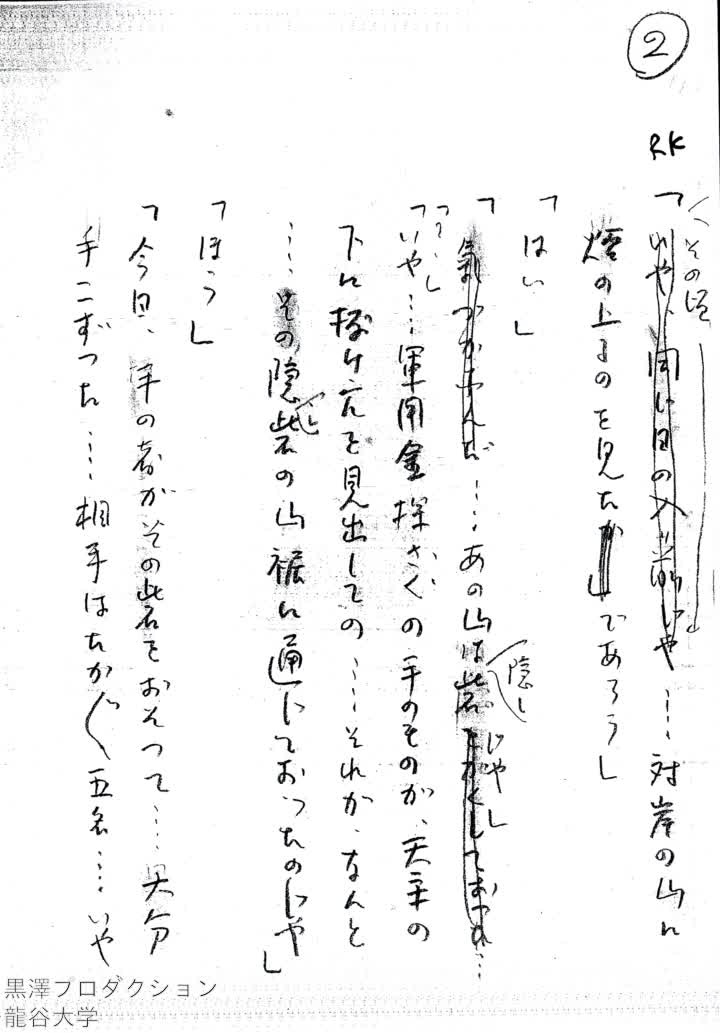 ②
RK
その頃
「いや、同じ日の入り前じゃ……対岸の山に
煙の上るのを見たか」であろう」
「はい」
「氣づかなんだ……あの山は砦をかくしておった…
隠し
じゃ」
「…」
「いや……軍用金探さぐの手のものが、天幸の
下に抜け穴を見出しての……それが、なんと
……その隠し砦の山裾に通じておったのじゃ」
「ほう」
「今日、手の者がその砦をおそって……大分
手こずった……相手はたかが五名……いや
黒澤プロダクション
龍谷大学